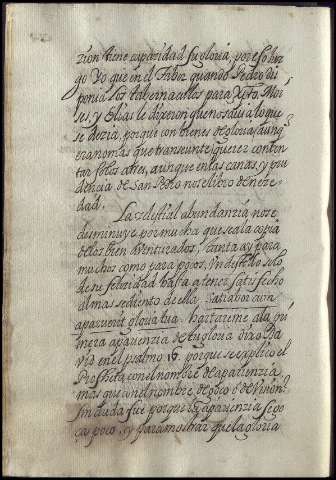 zion tiene capazidad su gloria, por eso luz
go yo que en el Tabor quando Pedro dis
ponia los tabernaculos para Xpto, Moi
ses, y Elias le dixeron que no sauia lo que
se dezia, porque con vienes de gloria, aunq
era no mas que transeunte, querer conten
tar solos a tres, aunque en las canas, y pru
dencia de San Pedro no se libro de nece
dad.
La zelestial abundanzia no se
disminuye por mucha que sea la copia
de los bien aventurados, tanta ay para
muchos como para pocos, un destello solo
de su felicidad basta a tener satisfecho
al mas sediento de ella, Satiabor cum
apparuerit gloria tua. hartareme a la pri
mera aparienzia de tu gloria dixo Da
vid en el psalmo 16. porque se explico el
Propheta con el nombre de aparienzia,
mas que con el nombre de gozo, o de vision?
sin duda fue porque la aparienzia se go
za poco, y para mostrar que la gloria